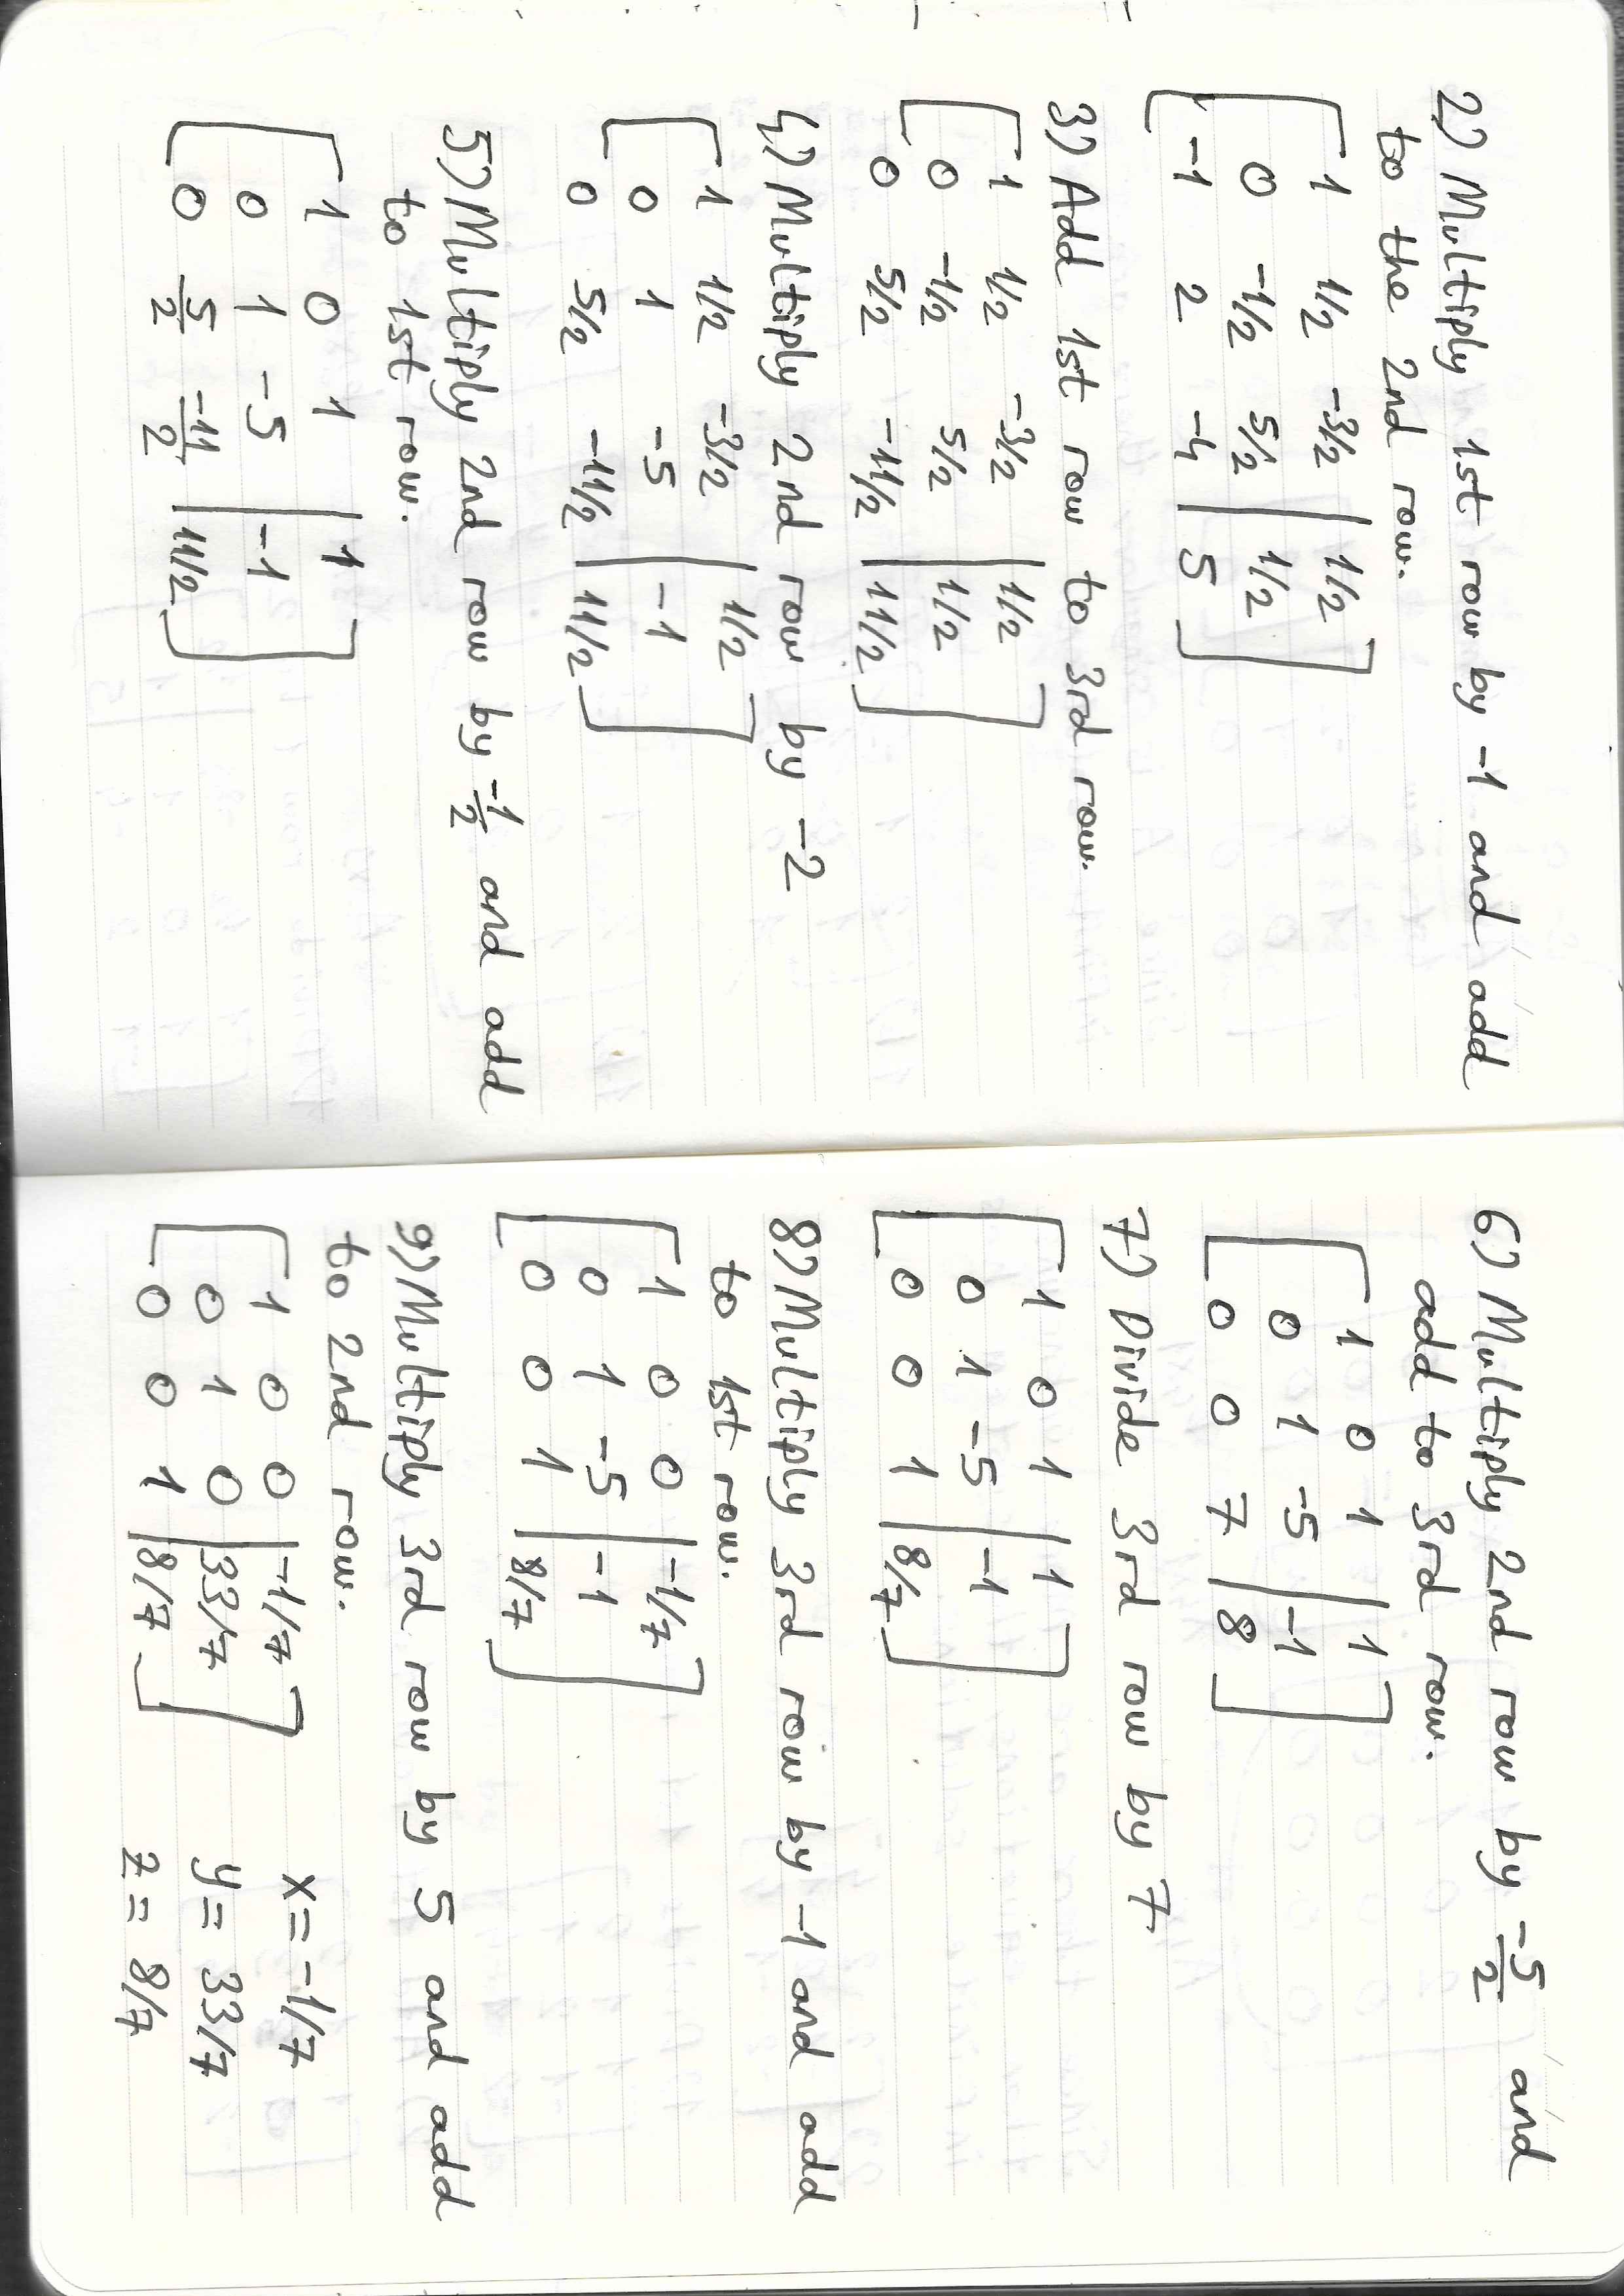 2) Multiply 1st row by -1 and add
to the 2nd row.
1 1/2 -3/2 | 1/2
0 -1/2 5/2 | 1/2
-1 2 -4 | 5
3) Add 1st row to 3rd row.
1 1/2 -3/2 | 1/2
0 -1/2 5/2 | 1/2
0 5/2 -11/2 | 11/2
4) Multiply 2nd row by -2
1 1/2 -3/2 | 1/2
0 1 -5 | -1
0 5/2 -11/2 | 11/2
5) Multiply 2nd row by -1/2 and add
to 1st row.
1 0 1 | 1
0 1 -5 | -1
0 5/2 -11/2 | 11/2
6) Multiply 2nd row by -5/2 and
add to 3rd row.
1 0 1 | 1
0 1 -5 | -1
0 0 7 | 8
7) Divide 3rd row by 7
1 0 1 | 1
0 1 -5 | -1
0 0 1 | 8/7
8) Multiply 3rd row by -1 and add
to 1st row.
1 0 0 | -1/7
0 1 -5 | -1
0 0 1 | 8/7
9) Multiply 3rd row by 5 and add
to 2nd row.
1 0 0 | -1/7
0 1 0 | 33/7
0 0 1 | 8/7
x = -1/7
y = 33/7
z = 8/7